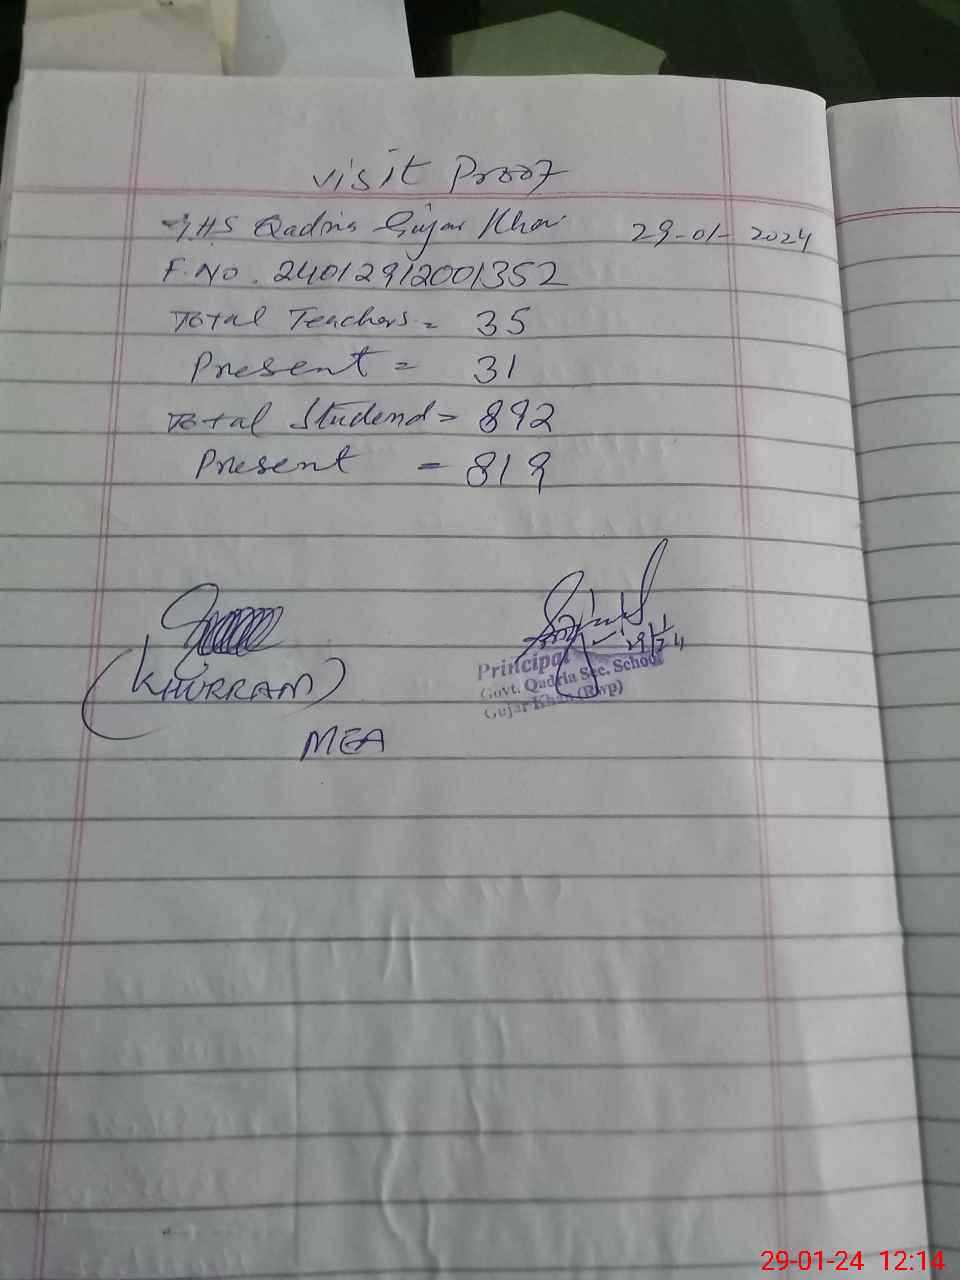 Visit Proof
GHS Qadria Gujar Khan 29-01-2024
F.No. 24012912001352
Total Teachers = 35
Present = 31
Total Studend = 892
Present = 819
29/1/24
(KHURRAM)
MEA
Principal
Govt. Qadria Sec. School
Gujar Khan (Rwp)
29-01-24 12:14